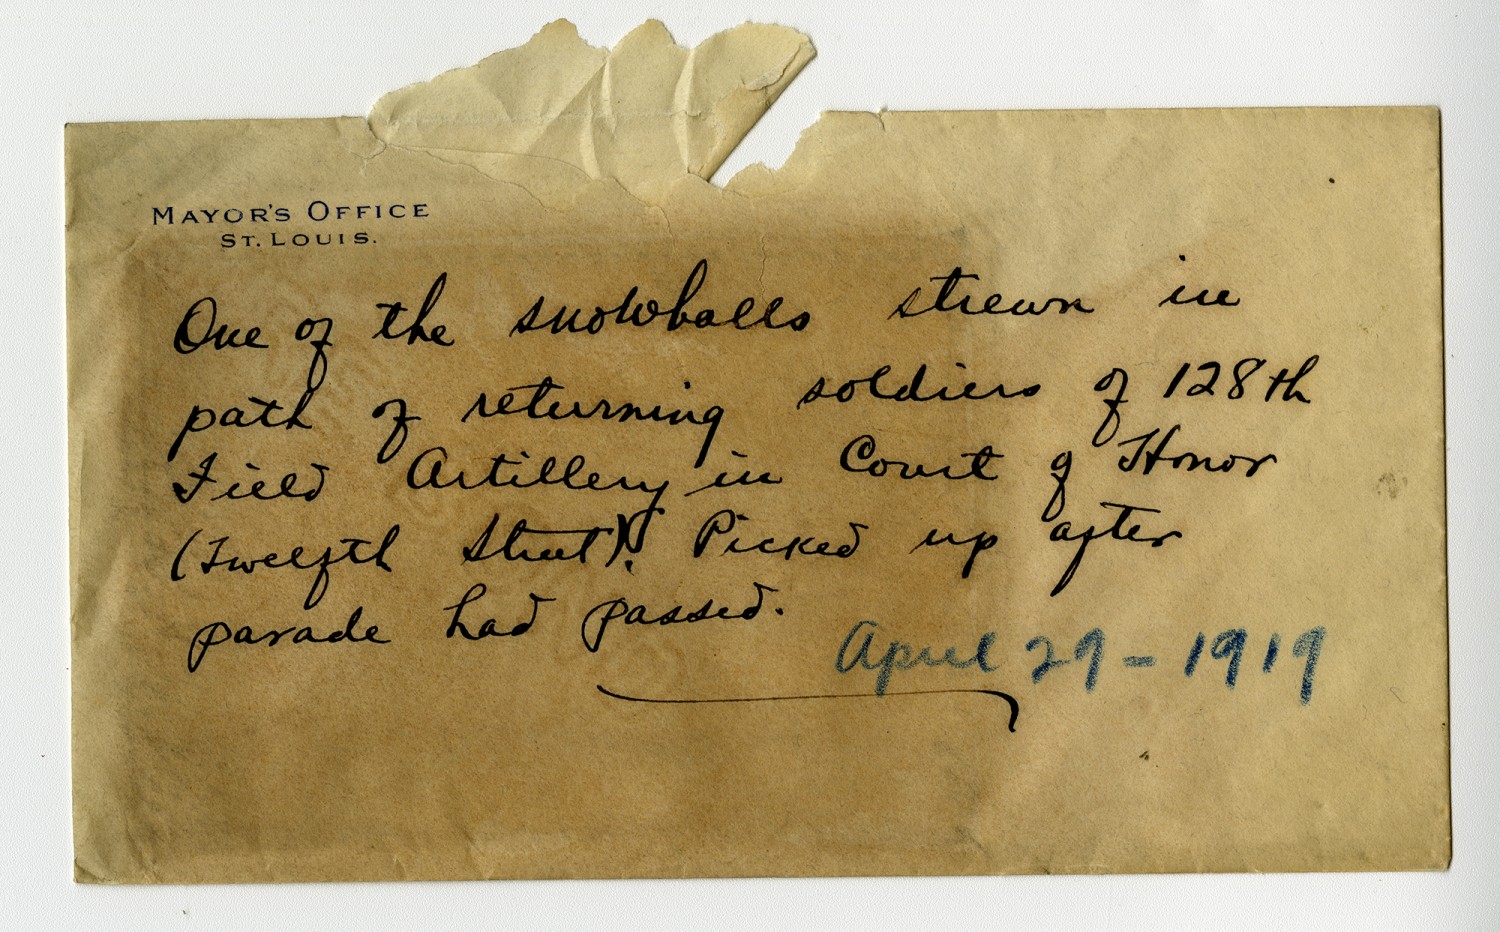 MAYOR'S OFFICE
ST. LOUIS.
One of the snowballs strewn in
path of returning soldiers of 128th
Field Artillery in Court of Honor
(Twelfth Street). Picked up after
parade had passed.
April 29-1919